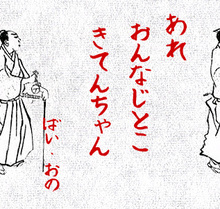 あれ
おんなじとこ
きてんちゃん
ばい、おの